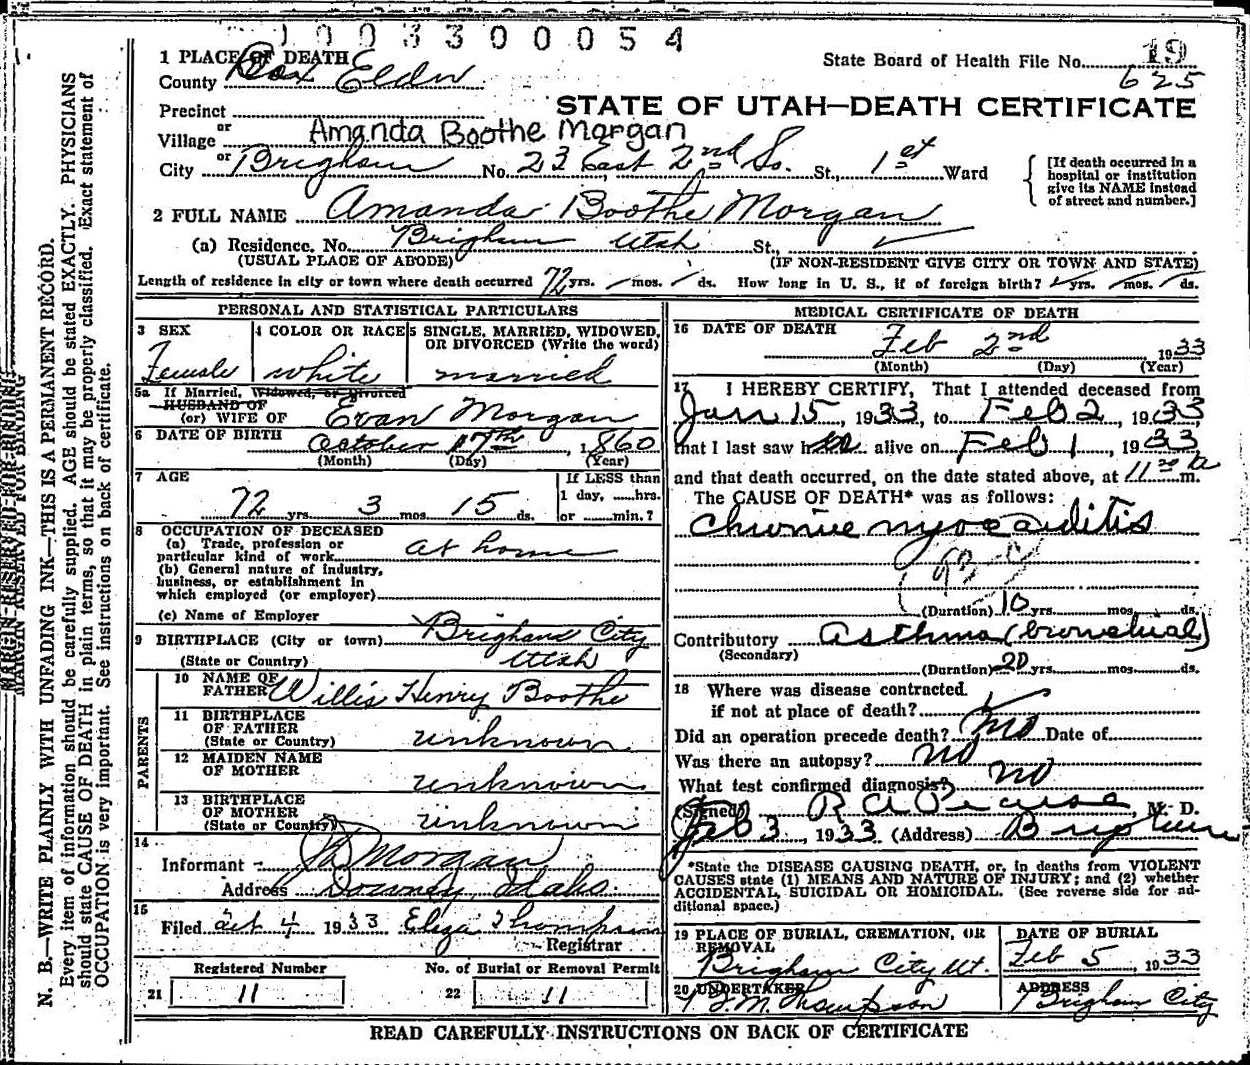 1003300054
1 PLACE OF DEATH
State Board of Health File No. 19
County Box Elder
625
Precinct
STATE OF UTAH—DEATH CERTIFICATE
or
Village Amanda Boothe Morgan
City or Brigham No. 23 East 2nd So. St., 1st Ward
[If death occurred in a hospital or institution give its NAME instead of street and number.]
2 FULL NAME Amanda Boothe Morgan
(a) Residence. No. Brigham Utah St.,
(USUAL PLACE OF ABODE) (IF NON-RESIDENT GIVE CITY OR TOWN AND STATE)
Length of residence in city or town where death occurred 72 yrs. mos. ds. How long in U. S., if of foreign birth? yrs. mos. ds.
PERSONAL AND STATISTICAL PARTICULARS
3 SEX
Female
4 COLOR OR RACE
white
5 SINGLE, MARRIED, WIDOWED, OR DIVORCED (Write the word)
married
5a If Married, Widowed, or Divorced
HUSBAND OF
(or) WIFE OF Evan Morgan
6 DATE OF BIRTH October 17th, 1860
(Month) (Day) (Year)
7 AGE
72 yrs. 3 mos. 15 ds.
If LESS than
1 day, hrs.
or min.?
8 OCCUPATION OF DECEASED
(a) Trade, profession or
particular kind of work at home
(b) General nature of industry,
business, or establishment in
which employed (or employer)
(c) Name of Employer
9 BIRTHPLACE (City or town) Brigham City
(State or Country) Utah
PARENTS
10 NAME OF
FATHER Willis Henry Boothe
11 BIRTHPLACE
OF FATHER
(State or Country) unknown
12 MAIDEN NAME
OF MOTHER unknown
13 BIRTHPLACE
OF MOTHER
(State or Country) unknown
14
Informant Morgan
Address Downey, Idaho
15
Filed Oct 4 1933 Eliza Thompson
Registrar
Registered Number
21 11
No. of Burial or Removal Permit
22 11
MEDICAL CERTIFICATE OF DEATH
16 DATE OF DEATH
Feb 2nd 1933
(Month) (Day) (Year)
17 I HEREBY CERTIFY, That I attended deceased from
Jan 15, 1933, to Feb 2 1933,
that I last saw her alive on Feb 1, 1933
and that death occurred, on the date stated above, at 11 a m.
The CAUSE OF DEATH* was as follows:
chronic myocarditis
(Duration) 10 yrs. mos. ds.
Contributory Asthma (bronchial)
(Secondary)
(Duration) 20 yrs. mos. ds.
18 Where was disease contracted
if not at place of death?
Did an operation precede death? no Date of
Was there an autopsy? no
What test confirmed diagnosis? no
(Signed) R A Pearse, M. D.
Feb 3, 1933 (Address) Brigham
*State the DISEASE CAUSING DEATH, or, in deaths from VIOLENT
CAUSES state (1) MEANS AND NATURE OF INJURY; and (2) whether
ACCIDENTAL, SUICIDAL OR HOMICIDAL. (See reverse side for ad-
ditional space.)
19 PLACE OF BURIAL, CREMATION, OR
REMOVAL
Brigham City Ut.
DATE OF BURIAL
Feb 5, 1933
20 UNDERTAKER
M. Thompson
ADDRESS
Brigham City
READ CAREFULLY INSTRUCTIONS ON BACK OF CERTIFICATE
MARGIN RESERVED FOR BINDING
N. B.—WRITE PLAINLY WITH UNFADING INK—THIS IS A PERMANENT RECORD.
Every item of information should be carefully supplied. AGE should be stated EXACTLY. PHYSICIANS
should state CAUSE OF DEATH in plain terms, so that it may be properly classified. Exact statement of
OCCUPATION is very important. See instructions on back of certificate.